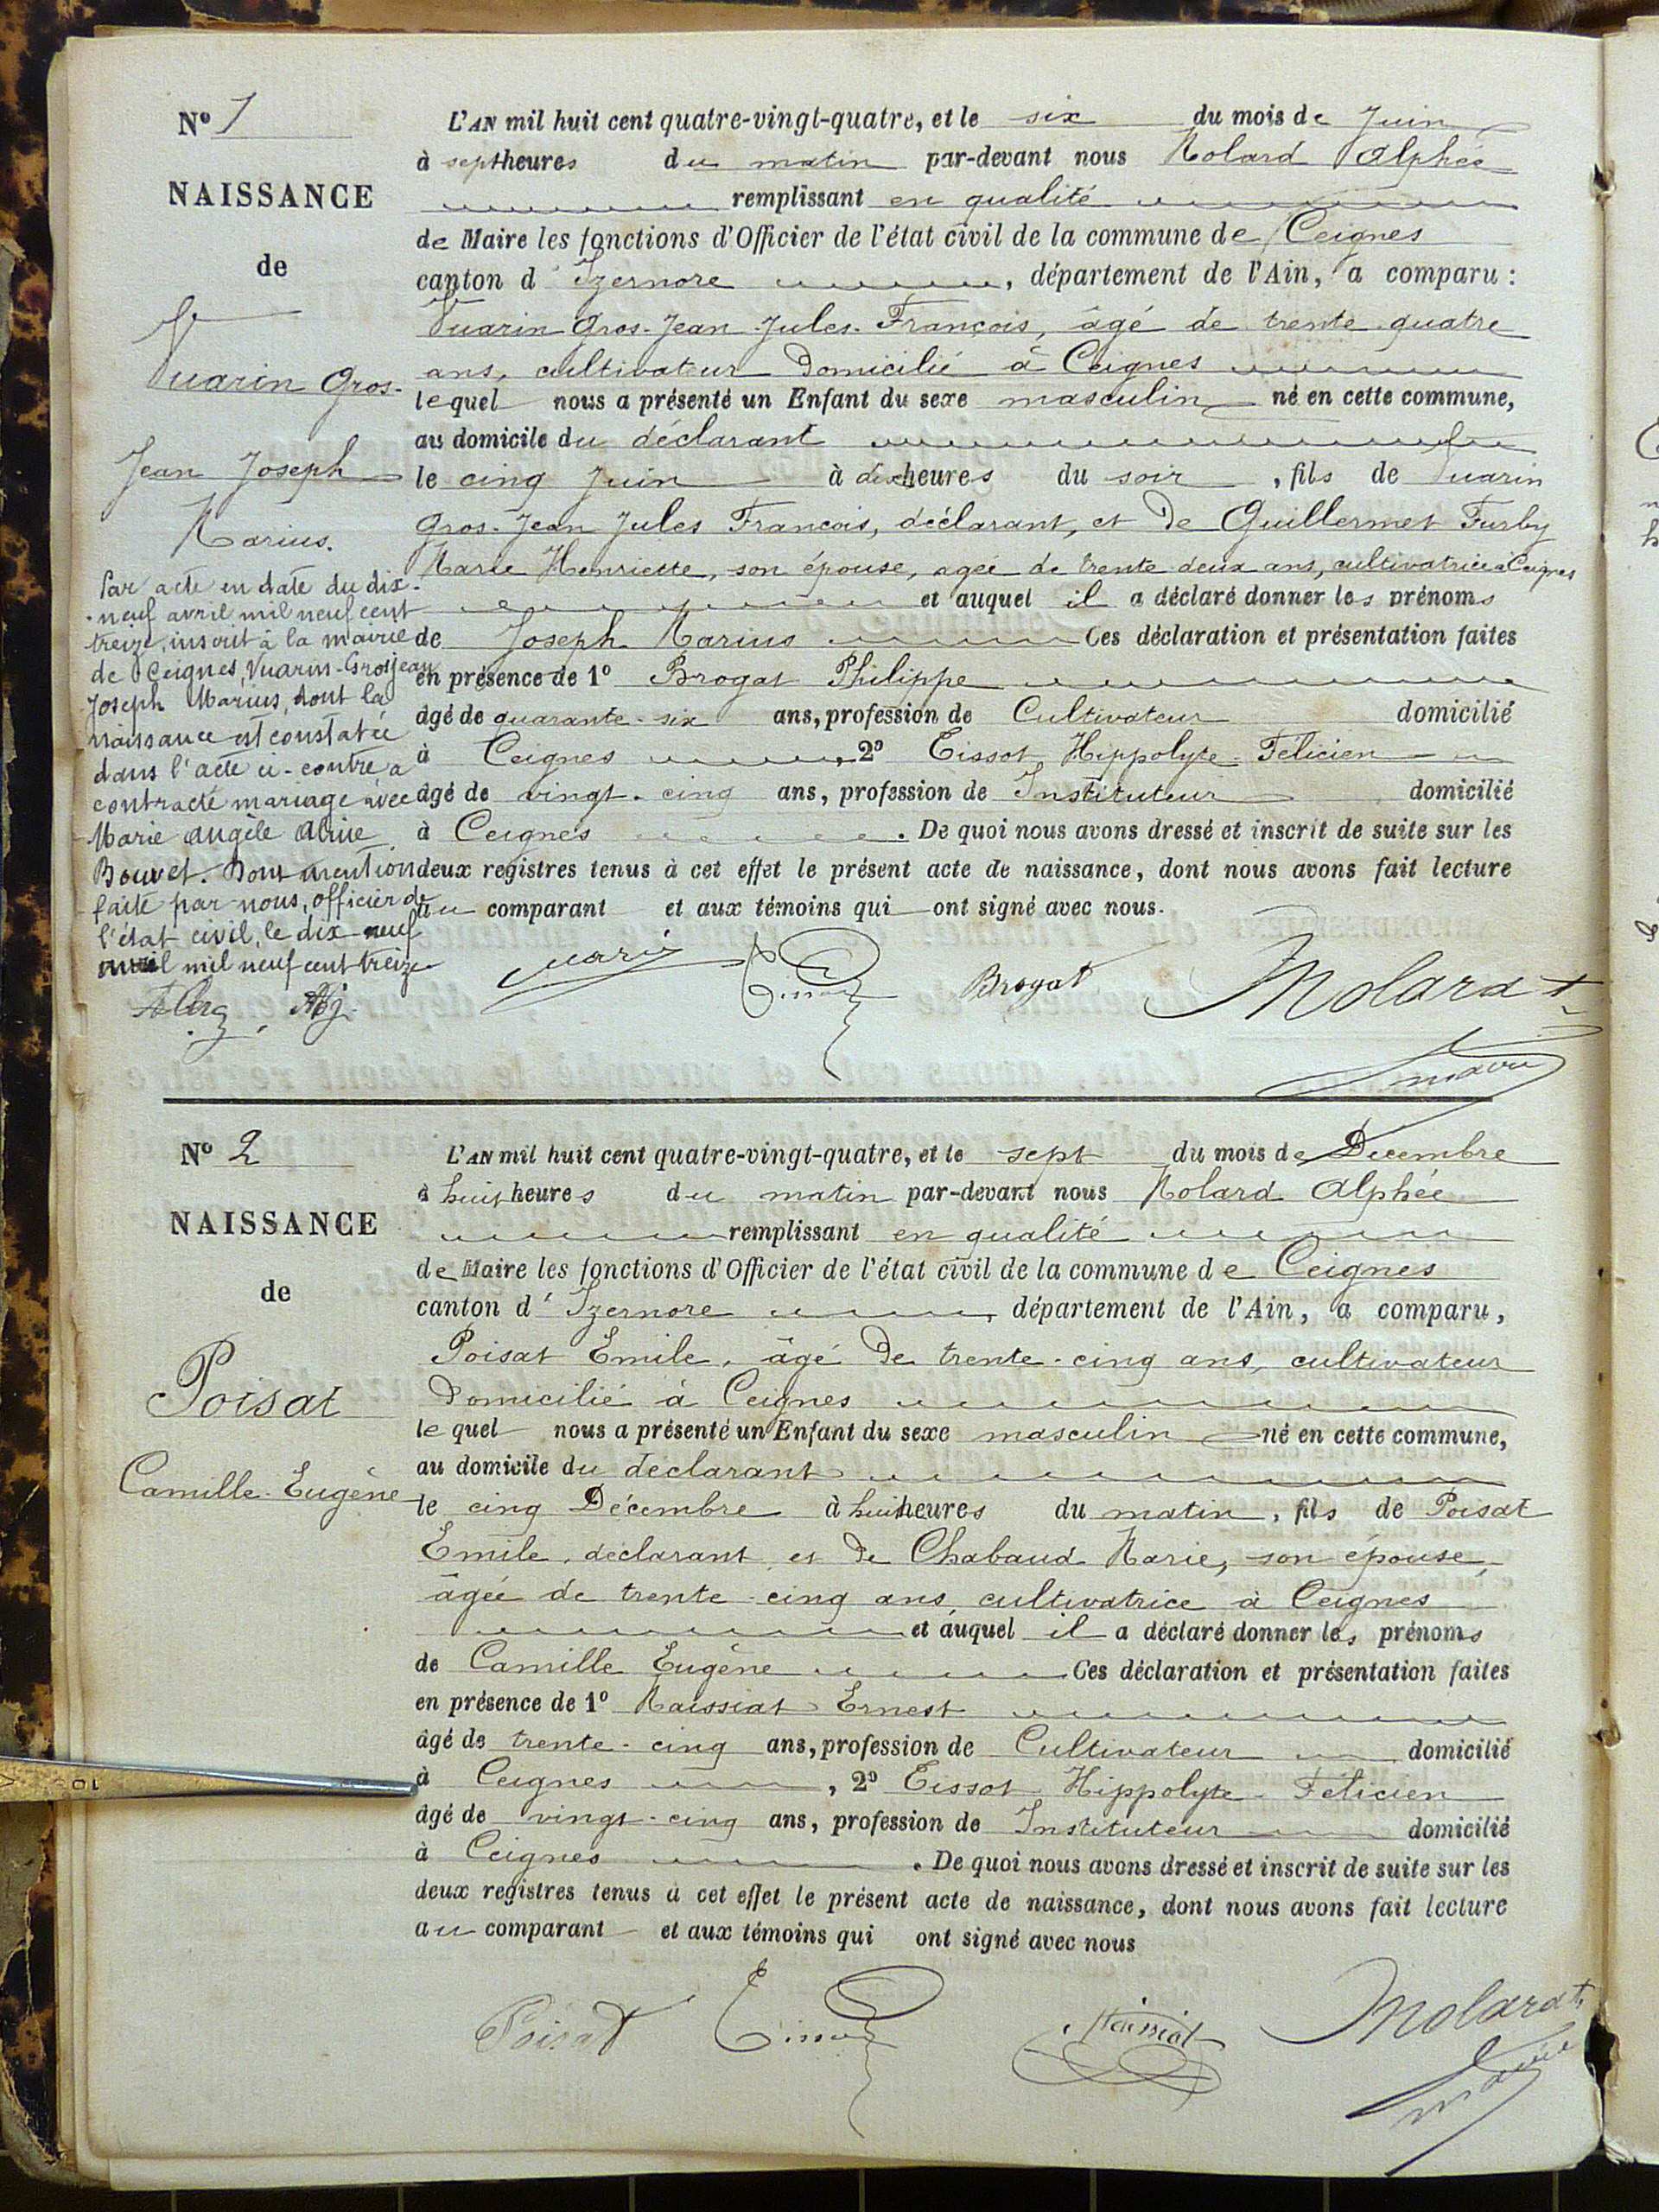 N° 1
NAISSANCE
de
Vuarin Gros-
Jean Joseph
Marius.
Par acte en date du dix-
neuf avril mil neuf cent
treize, inscrit à la mairie
de Ceignes, Vuarin-Grosjean
Joseph Marius, dont la
naissance est constatée
dans l'acte ci-contre a
contracté mariage avec
Marie Angèle
Bouvet. Dont mention
faite par nous, officier de
l'état civil, le dix-neuf
avril mil neuf cent treize
L'AN mil huit cent quatre-vingt-quatre, et le six du mois de Juin
à sept heures du matin par-devant nous Molard Alphée
remplissant en qualité
de Maire les fonctions d'Officier de l'état civil de la commune de Ceignes
canton d'Izernore, département de l'Ain, a comparu :
Vuarin Gros-Jean Jules-François, âgé de trente-quatre
ans, cultivateur domicilié à Ceignes
lequel nous a présenté un Enfant du sexe masculin né en cette commune,
au domicile du déclarant
le cinq Juin à dix heures du soir, fils de Vuarin
Gros-Jean Jules François, déclarant, et de Guillermet Furby
Marie Henriette, son épouse, agée de trente deux ans, cultivatrice à Ceignes
et auquel il a déclaré donner les prénoms
de Joseph Marius Ces déclaration et présentation faites
en présence de 1° Brogat Philippe
âgé de quarante-six ans, profession de Cultivateur domicilié
à Ceignes, 2° Tissot Hippolyte-Félicien
âgé de vingt-cinq ans, profession de Instituteur domicilié
à Ceignes. De quoi nous avons dressé et inscrit de suite sur les
deux registres tenus à cet effet le présent acte de naissance, dont nous avons fait lecture
au comparant et aux témoins qui ont signé avec nous.
Vuarin Tissot Brogat Molard
maire
N° 2
NAISSANCE
de
Poisat
Camille-Eugène
L'AN mil huit cent quatre-vingt-quatre, et le sept du mois de Décembre
à huit heures du matin par-devant nous Molard Alphée
remplissant en qualité
de Maire les fonctions d'Officier de l'état civil de la commune de Ceignes
canton d'Izernore, département de l'Ain, a comparu,
Poisat Emile, âgé de trente-cinq ans, cultivateur
domicilié à Ceignes
lequel nous a présenté un Enfant du sexe masculin né en cette commune,
au domicile du déclarant
le cinq Décembre à huit heures du matin, fils de Poisat
Emile, déclarant et de Chabaud Marie, son épouse,
âgée de trente-cinq ans, cultivatrice à Ceignes
et auquel il a déclaré donner les prénoms
de Camille Eugène Ces déclaration et présentation faites
en présence de 1° Maissiat Ernest
âgé de trente-cinq ans, profession de Cultivateur domicilié
à Ceignes, 2° Tissot Hippolyte-Félicien
âgé de vingt-cinq ans, profession de Instituteur domicilié
à Ceignes. De quoi nous avons dressé et inscrit de suite sur les
deux registres tenus à cet effet le présent acte de naissance, dont nous avons fait lecture
au comparant et aux témoins qui ont signé avec nous
Poisat Tissot Maissiat Molard
maire